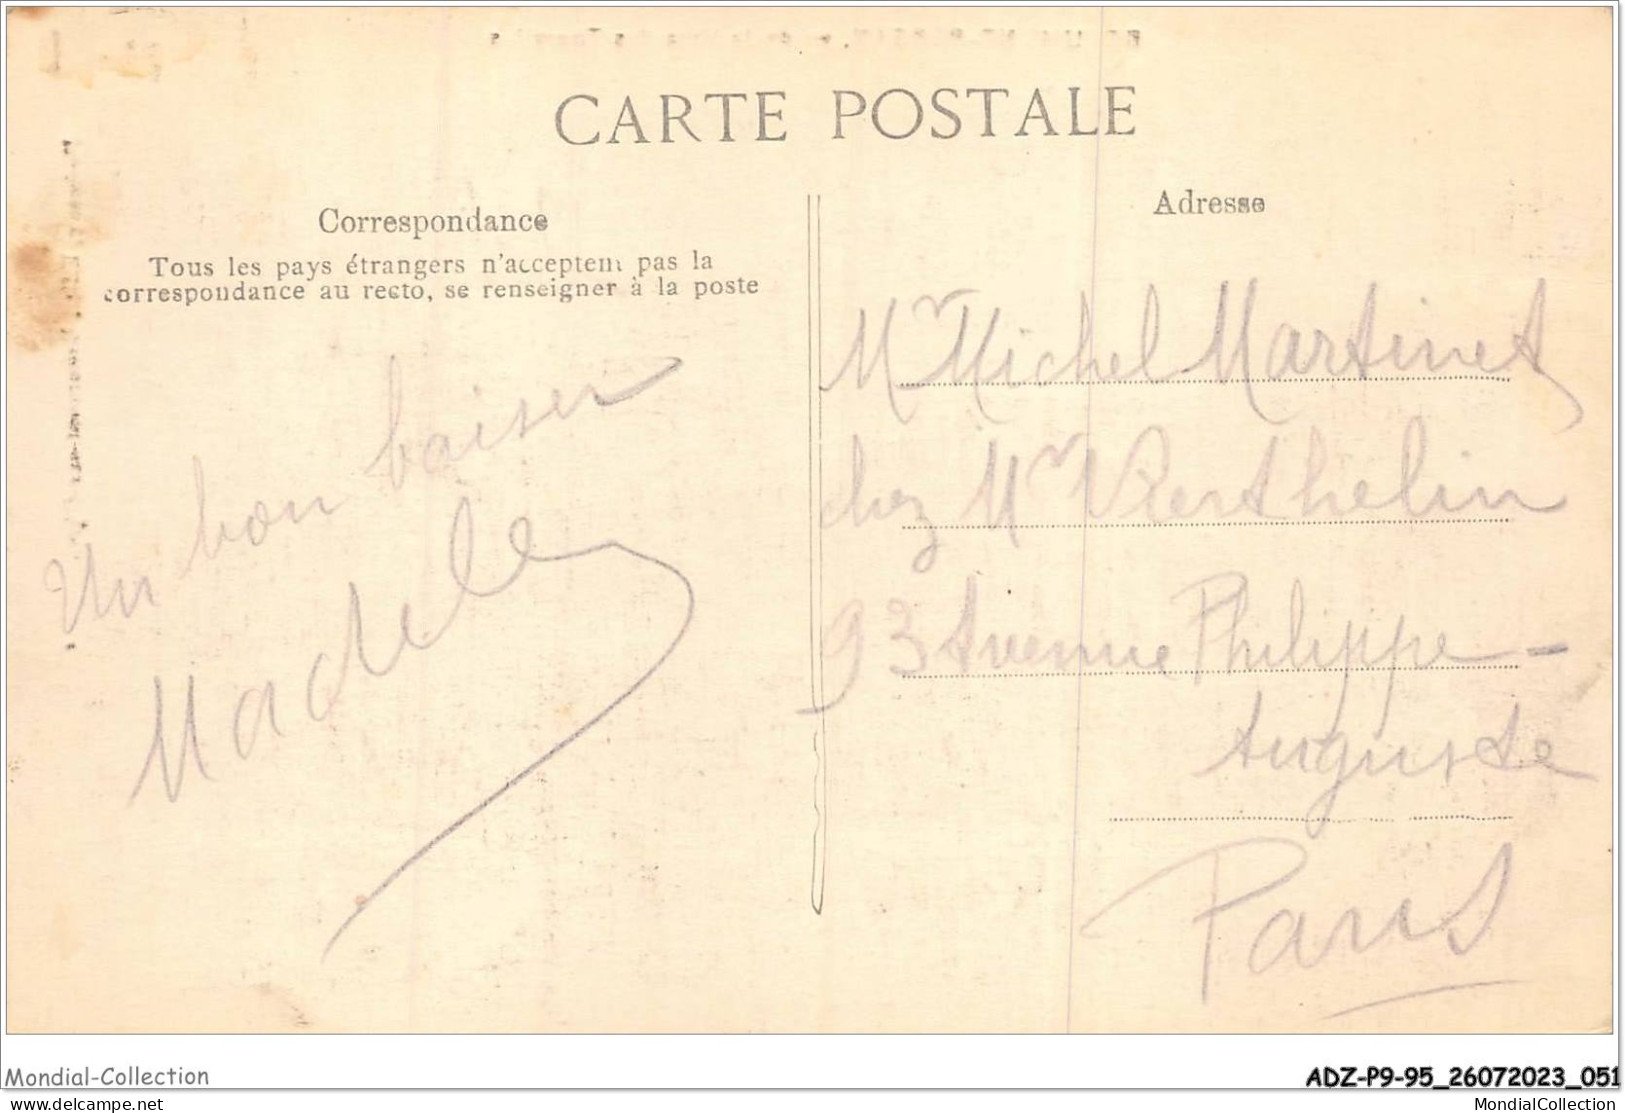 CARTE POSTALE
Correspondance
Tous les pays étrangers n'acceptent pas la
correspondance au recto, se renseigner à la poste
Un bon baiser
Madele
Adresse
Mr Michel Martinet
chez Mr Berthelin
93 Avenue Philippe-
Auguste
Paris
Mondial-Collection
ADZ-P9-95_26072023_051
delcampe.net
MondialCollection